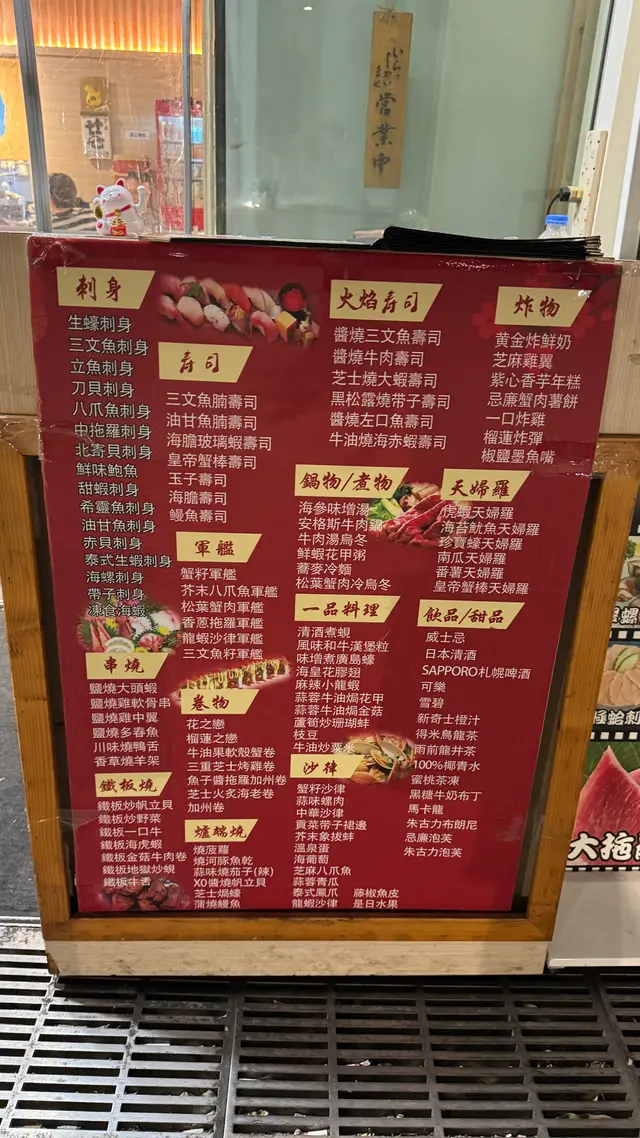 營業中
刺身
生蠔刺身
三文魚刺身
立魚刺身
刀貝刺身
八爪魚刺身
中拖羅刺身
北寄貝刺身
鮮味鮑魚
甜蝦刺身
希靈魚刺身
油甘魚刺身
赤貝刺身
泰式生蝦刺身
海螺刺身
帶子刺身
凍食海蝦
串燒
鹽燒大頭蝦
鹽燒雞軟骨串
鹽燒雞中翼
鹽燒多春魚
川味燒鴨舌
香草燒羊架
鐵板燒
鐵板炒帆立貝
鐵板炒野菜
鐵板一口牛
鐵板海虎蝦
鐵板金菇牛肉卷
鐵板地獄炒蜆
鐵板牛舌
寿司
三文魚腩壽司
油甘魚腩壽司
海膽玻璃蝦壽司
皇帝蟹棒壽司
玉子壽司
海膽壽司
鰻魚壽司
軍艦
蟹籽軍艦
芥末八爪魚軍艦
松葉蟹肉軍艦
香蔥拖羅軍艦
龍蝦沙律軍艦
三文魚籽軍艦
卷物
花之戀
榴蓮之戀
牛油果軟殼蟹卷
三重芝士烤雞卷
魚子醬拖羅加州卷
芝士火炙海老卷
加州卷
爐端燒
燒菠蘿
燒河豚魚乾
蒜味燒茄子(辣)
XO醬燒帆立貝
芝士焗蠔
蒲燒鰻魚
火焰寿司
醬燒三文魚壽司
醬燒牛肉壽司
芝士燒大蝦壽司
黑松露燒帶子壽司
醬燒左口魚壽司
牛油燒海赤蝦壽司
鍋物/煮物
海參味增湯
安格斯牛肉鍋
牛肉湯烏冬
鮮蝦花甲粥
蕎麥冷麵
松葉蟹肉冷烏冬
一品料理
清酒煮蜆
風味和牛漢堡粒
味增煮廣島蠔
海皇花膠翅
麻辣小龍蝦
蒜蓉牛油焗花甲
蒜蓉牛油焗金菇
蘆筍炒珊瑚蚌
枝豆
牛油炒粟米
沙律
蟹籽沙律
蒜味螺肉
中華沙律
貢菜帶子裙邊
芥末象拔蚌
溫泉蛋
海葡萄
芝麻八爪魚
蒜蓉青瓜
泰式鳳爪 藤椒魚皮
龍蝦沙律 是日水果
炸物
黄金炸鮮奶
芝麻雞翼
紫心香芋年糕
忌廉蟹肉薯餅
一口炸雞
榴蓮炸彈
椒鹽墨魚嘴
天婦羅
虎蝦天婦羅
海苔魷魚天婦羅
珍寶蠔天婦羅
南瓜天婦羅
番薯天婦羅
皇帝蟹棒天婦羅
飲品/甜品
威士忌
日本清酒
SAPPORO札幌啤酒
可樂
雪碧
新奇士橙汁
得米烏龍茶
雨前龍井茶
100%椰青水
蜜桃茶凍
黑糖牛奶布丁
馬卡龍
朱古力布朗尼
忌廉泡芙
朱古力泡芙
大拖